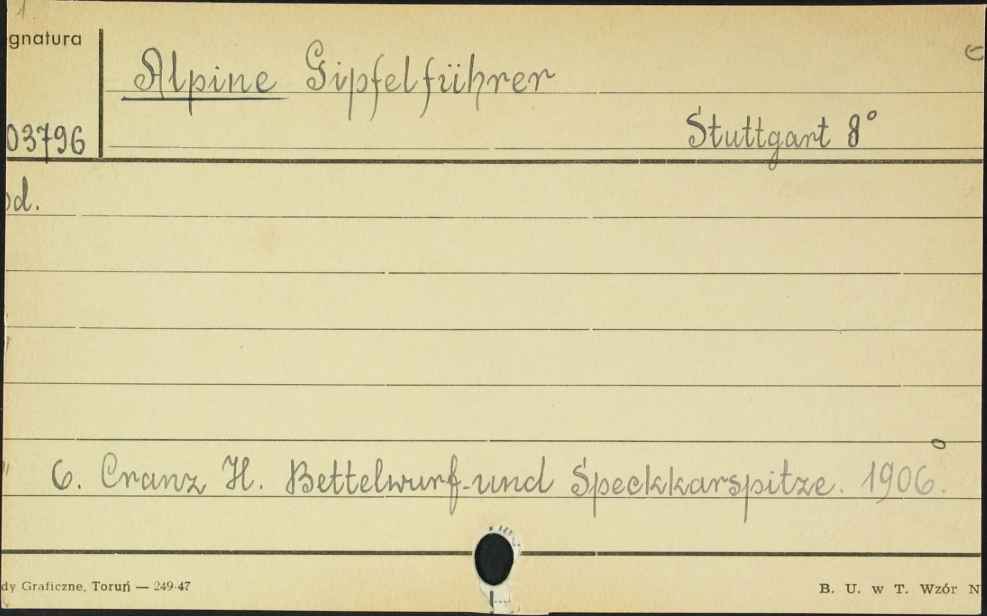 gnatura
Alpine Gipfelführer
03796
Stuttgart 8°
od.
6. Cranz H. Bettelwurf- und Speckkarspitze. 1906.
dy Graficzne, Toruń — 249-47
B. U. w T. Wzór N